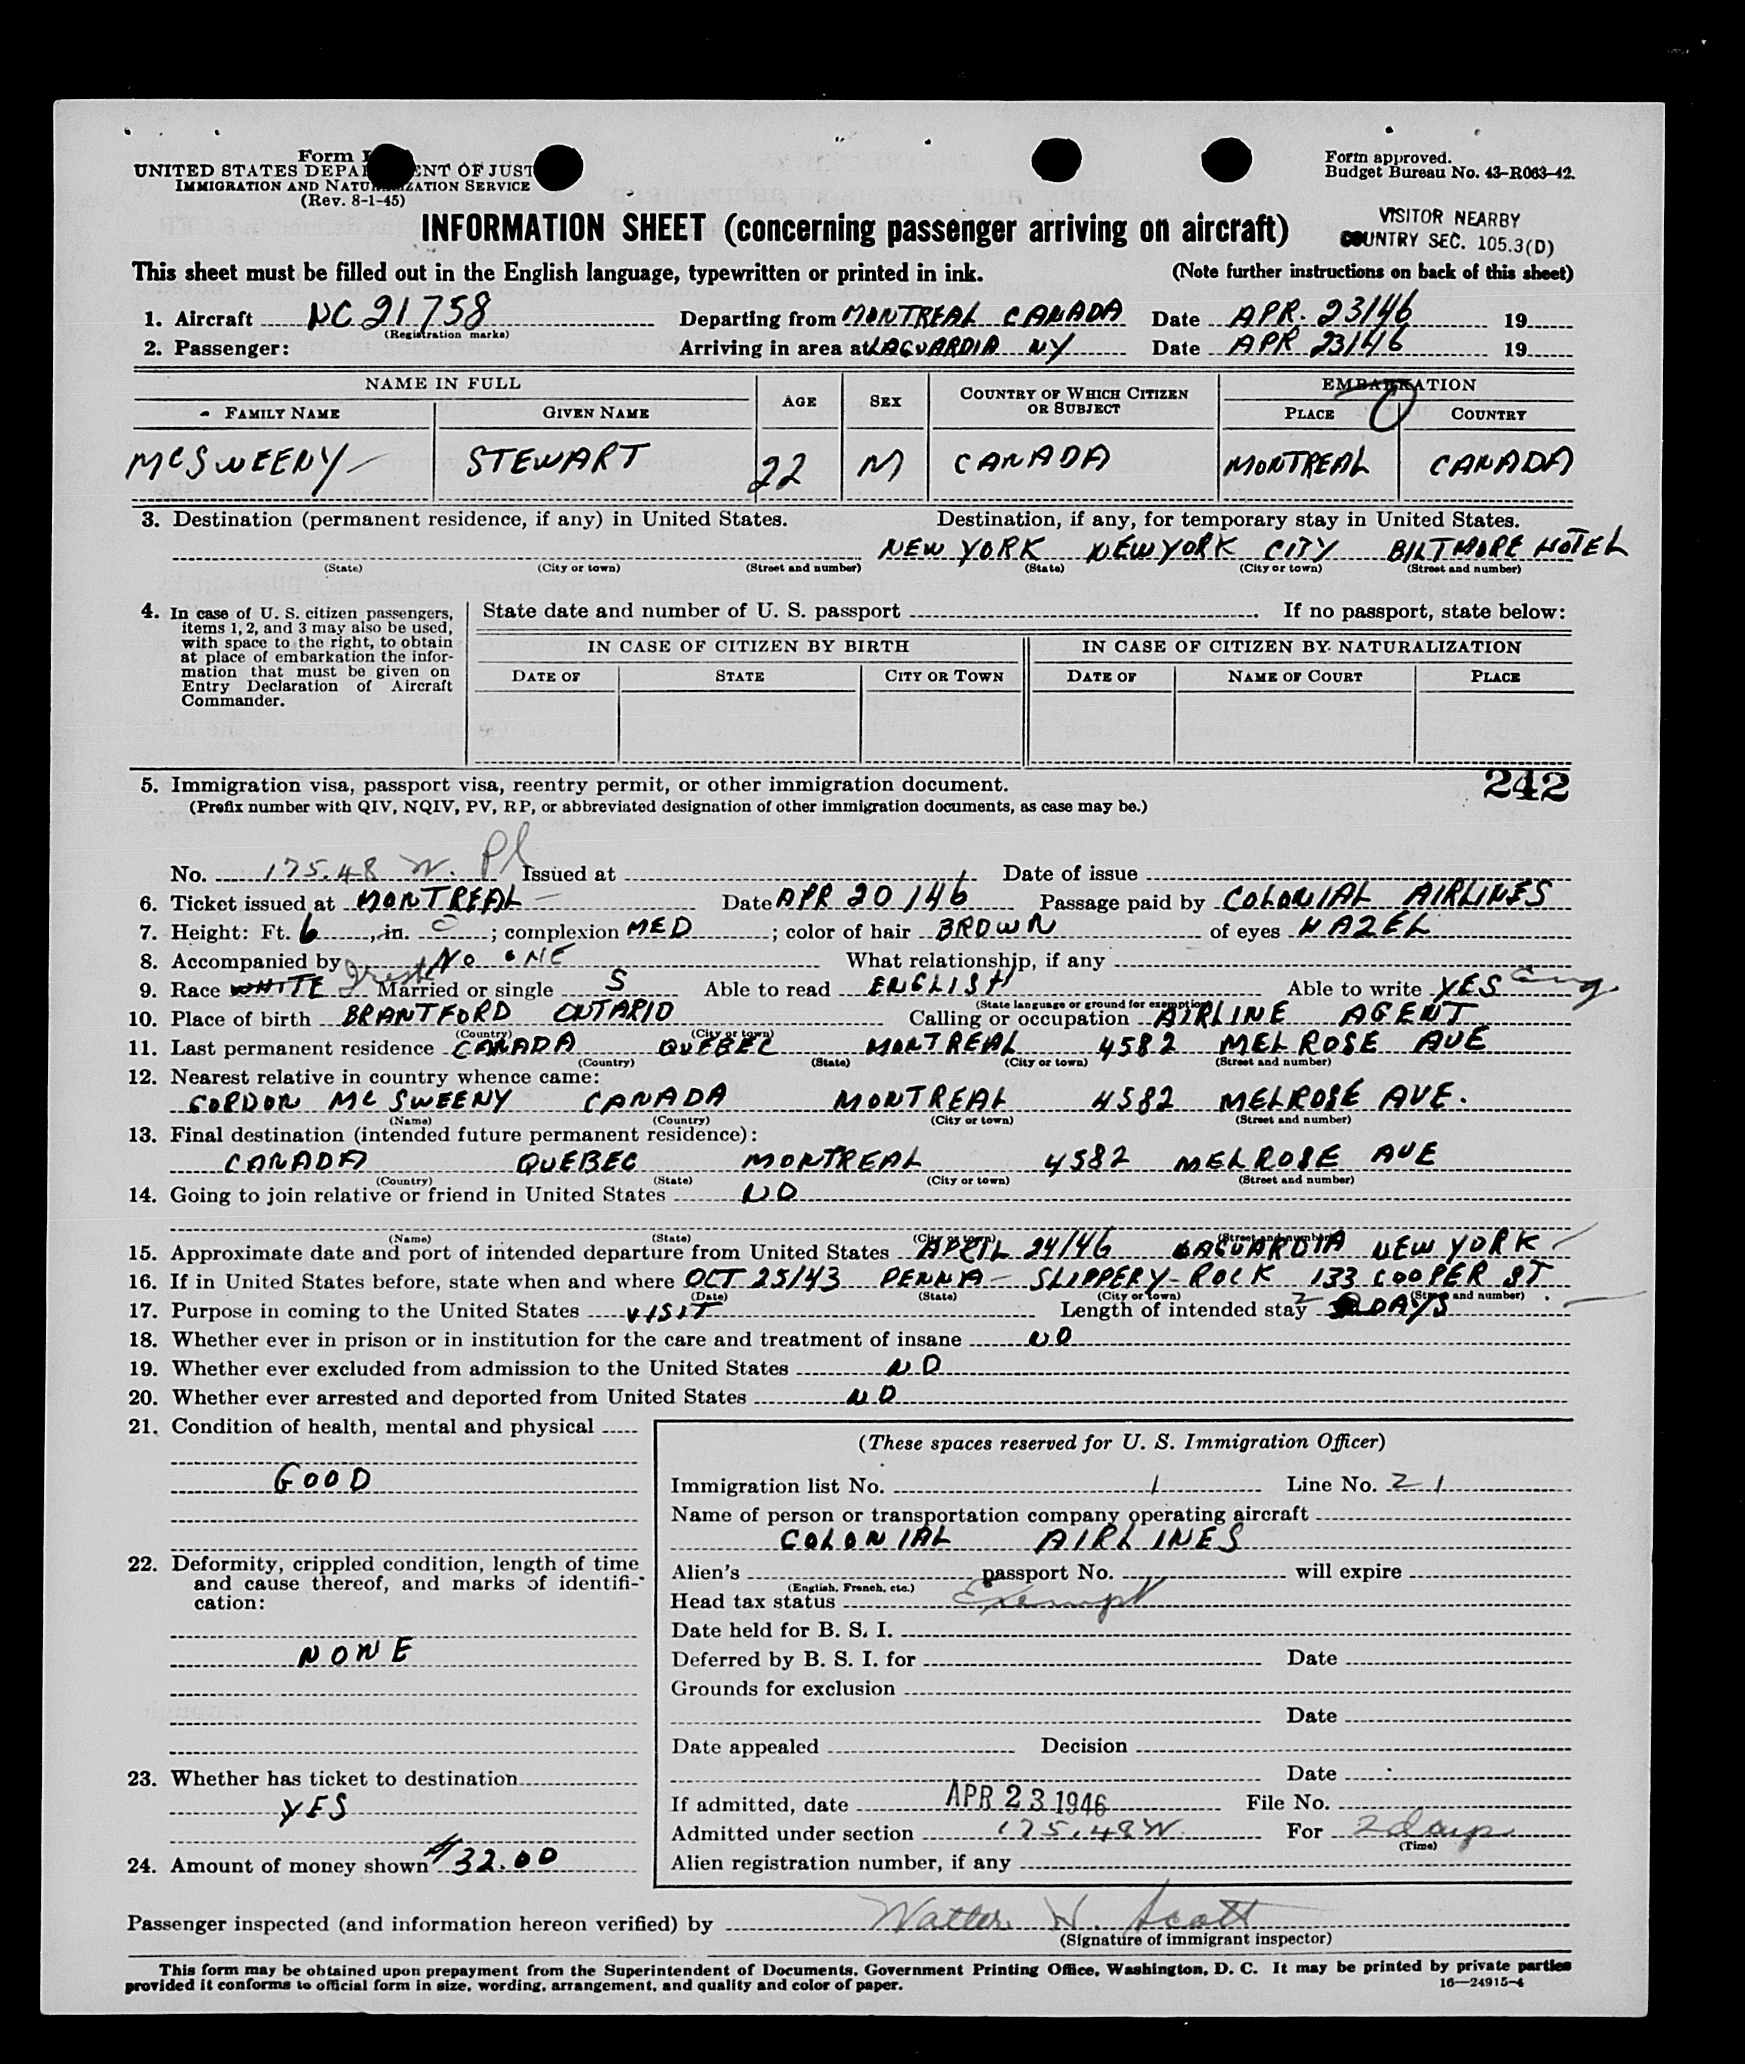 Form I
UNITED STATES DEPA ENT OF JUST
IMMIGRATION AND NATU ZATION SERVICE
(Rev. 8-1-45)
Form approved.
Budget Bureau No. 43-R063-42.
INFORMATION SHEET (concerning passenger arriving on aircraft)
VISITOR NEARBY
COUNTRY SEC. 105.3(D)
This sheet must be filled out in the English language, typewritten or printed in ink. (Note further instructions on back of this sheet)
1. Aircraft NC 21758 Departing from MONTREAL CANADA Date APR. 23/46 19
(Registration marks)
2. Passenger: Arriving in area at LAGUARDIA NY Date APR 23/46 19
NAME IN FULL AGE SEX COUNTRY OF WHICH CITIZEN OR SUBJECT EMBARKATION
FAMILY NAME GIVEN NAME PLACE COUNTRY
McSWEENY STEWART 22 M CANADA MONTREAL CANADA
3. Destination (permanent residence, if any) in United States. Destination, if any, for temporary stay in United States.
NEW YORK NEW YORK CITY BILTMORE HOTEL
(State) (City or town) (Street and number) (State) (City or town) (Street and number)
4. In case of U. S. citizen passengers,
items 1, 2, and 3 may also be used,
with space to the right, to obtain
at place of embarkation the infor-
mation that must be given on
Entry Declaration of Aircraft
Commander.
State date and number of U. S. passport . If no passport, state below:
IN CASE OF CITIZEN BY BIRTH IN CASE OF CITIZEN BY NATURALIZATION
DATE OF STATE CITY OR TOWN DATE OF NAME OF COURT PLACE
5. Immigration visa, passport visa, reentry permit, or other immigration document. 242
(Prefix number with QIV, NQIV, PV, RP, or abbreviated designation of other immigration documents, as case may be.)
No. 175.48 W. Pl Issued at Date of issue
6. Ticket issued at MONTREAL Date APR 20/46 Passage paid by COLONIAL AIRLINES
7. Height: Ft. 6, in. 0; complexion MED; color of hair BROWN of eyes HAZEL
8. Accompanied by NO ONE What relationship, if any
9. Race WHITE Irish Married or single S Able to read ENGLISH Able to write YES Eng.
(State language or ground for exemption)
10. Place of birth BRANTFORD ONTARIO Calling or occupation AIRLINE AGENT
(Country) (City or town)
11. Last permanent residence CANADA QUEBEC MONTREAL 4582 MELROSE AVE
(Country) (State) (City or town) (Street and number)
12. Nearest relative in country whence came:
GORDON MC SWEENY CANADA MONTREAL 4582 MELROSE AVE.
(Name) (Country) (City or town) (Street and number)
13. Final destination (intended future permanent residence):
CANADA QUEBEC MONTREAL 4582 MELROSE AVE
(Country) (State) (City or town) (Street and number)
14. Going to join relative or friend in United States NO
(Name) (State) (City or town) (Street and number)
15. Approximate date and port of intended departure from United States APRIL 24/46 LAGUARDIA NEW YORK
16. If in United States before, state when and where OCT 25/43 PENNA - SLIPPERY-ROCK 133 COOPER ST
(Date) (State) (City or town) (Street and number)
17. Purpose in coming to the United States VISIT Length of intended stay 2 DAYS
18. Whether ever in prison or in institution for the care and treatment of insane NO
19. Whether ever excluded from admission to the United States NO
20. Whether ever arrested and deported from United States NO
21. Condition of health, mental and physical
GOOD
22. Deformity, crippled condition, length of time
and cause thereof, and marks of identifi-
cation:
NONE
23. Whether has ticket to destination
YES
24. Amount of money shown $32.00
(These spaces reserved for U. S. Immigration Officer)
Immigration list No. 1 Line No. 21
Name of person or transportation company operating aircraft
COLONIAL AIRLINES
Alien's passport No. will expire
(English, French, etc.)
Head tax status Exempt
Date held for B. S. I.
Deferred by B. S. I. for Date
Grounds for exclusion
Date
Date appealed Decision
Date
If admitted, date APR 23 1946 File No.
Admitted under section 175.48W For 2 days
(Time)
Alien registration number, if any
Passenger inspected (and information hereon verified) by Walter W. Scott
(Signature of immigrant inspector)
This form may be obtained upon prepayment from the Superintendent of Documents, Government Printing Office, Washington, D. C. It may be printed by private parties
provided it conforms to official form in size, wording, arrangement, and quality and color of paper. 16—24915-4